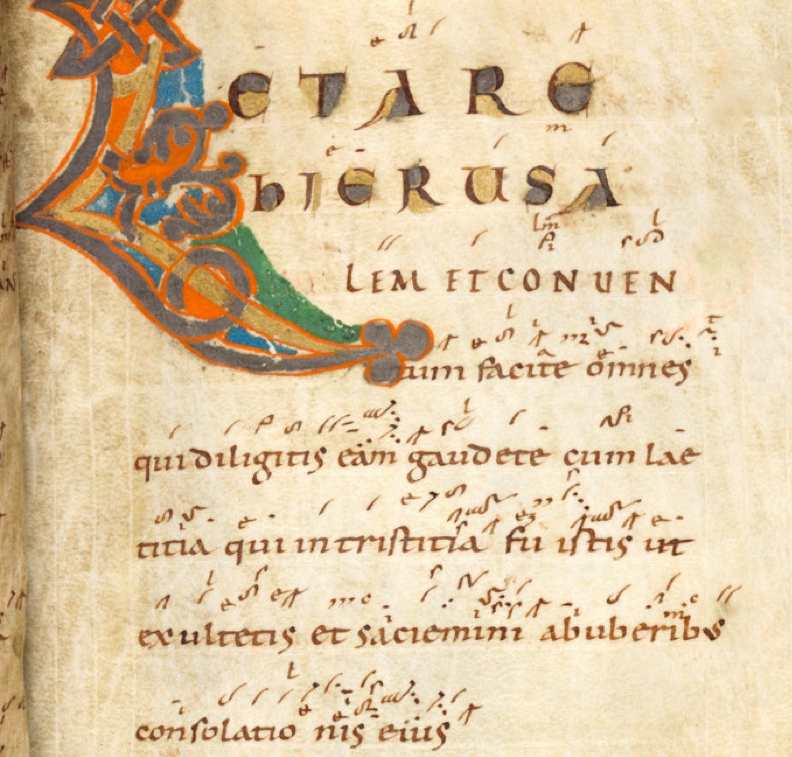 LETARE
hIERUSA
LEM ET CONUEN
tum facite omnes
qui diligitis eam gaudete cum lae
titia qui in tristitia fu istis ut
exultetis et saciemini ab uberibus
consolatio nis eius